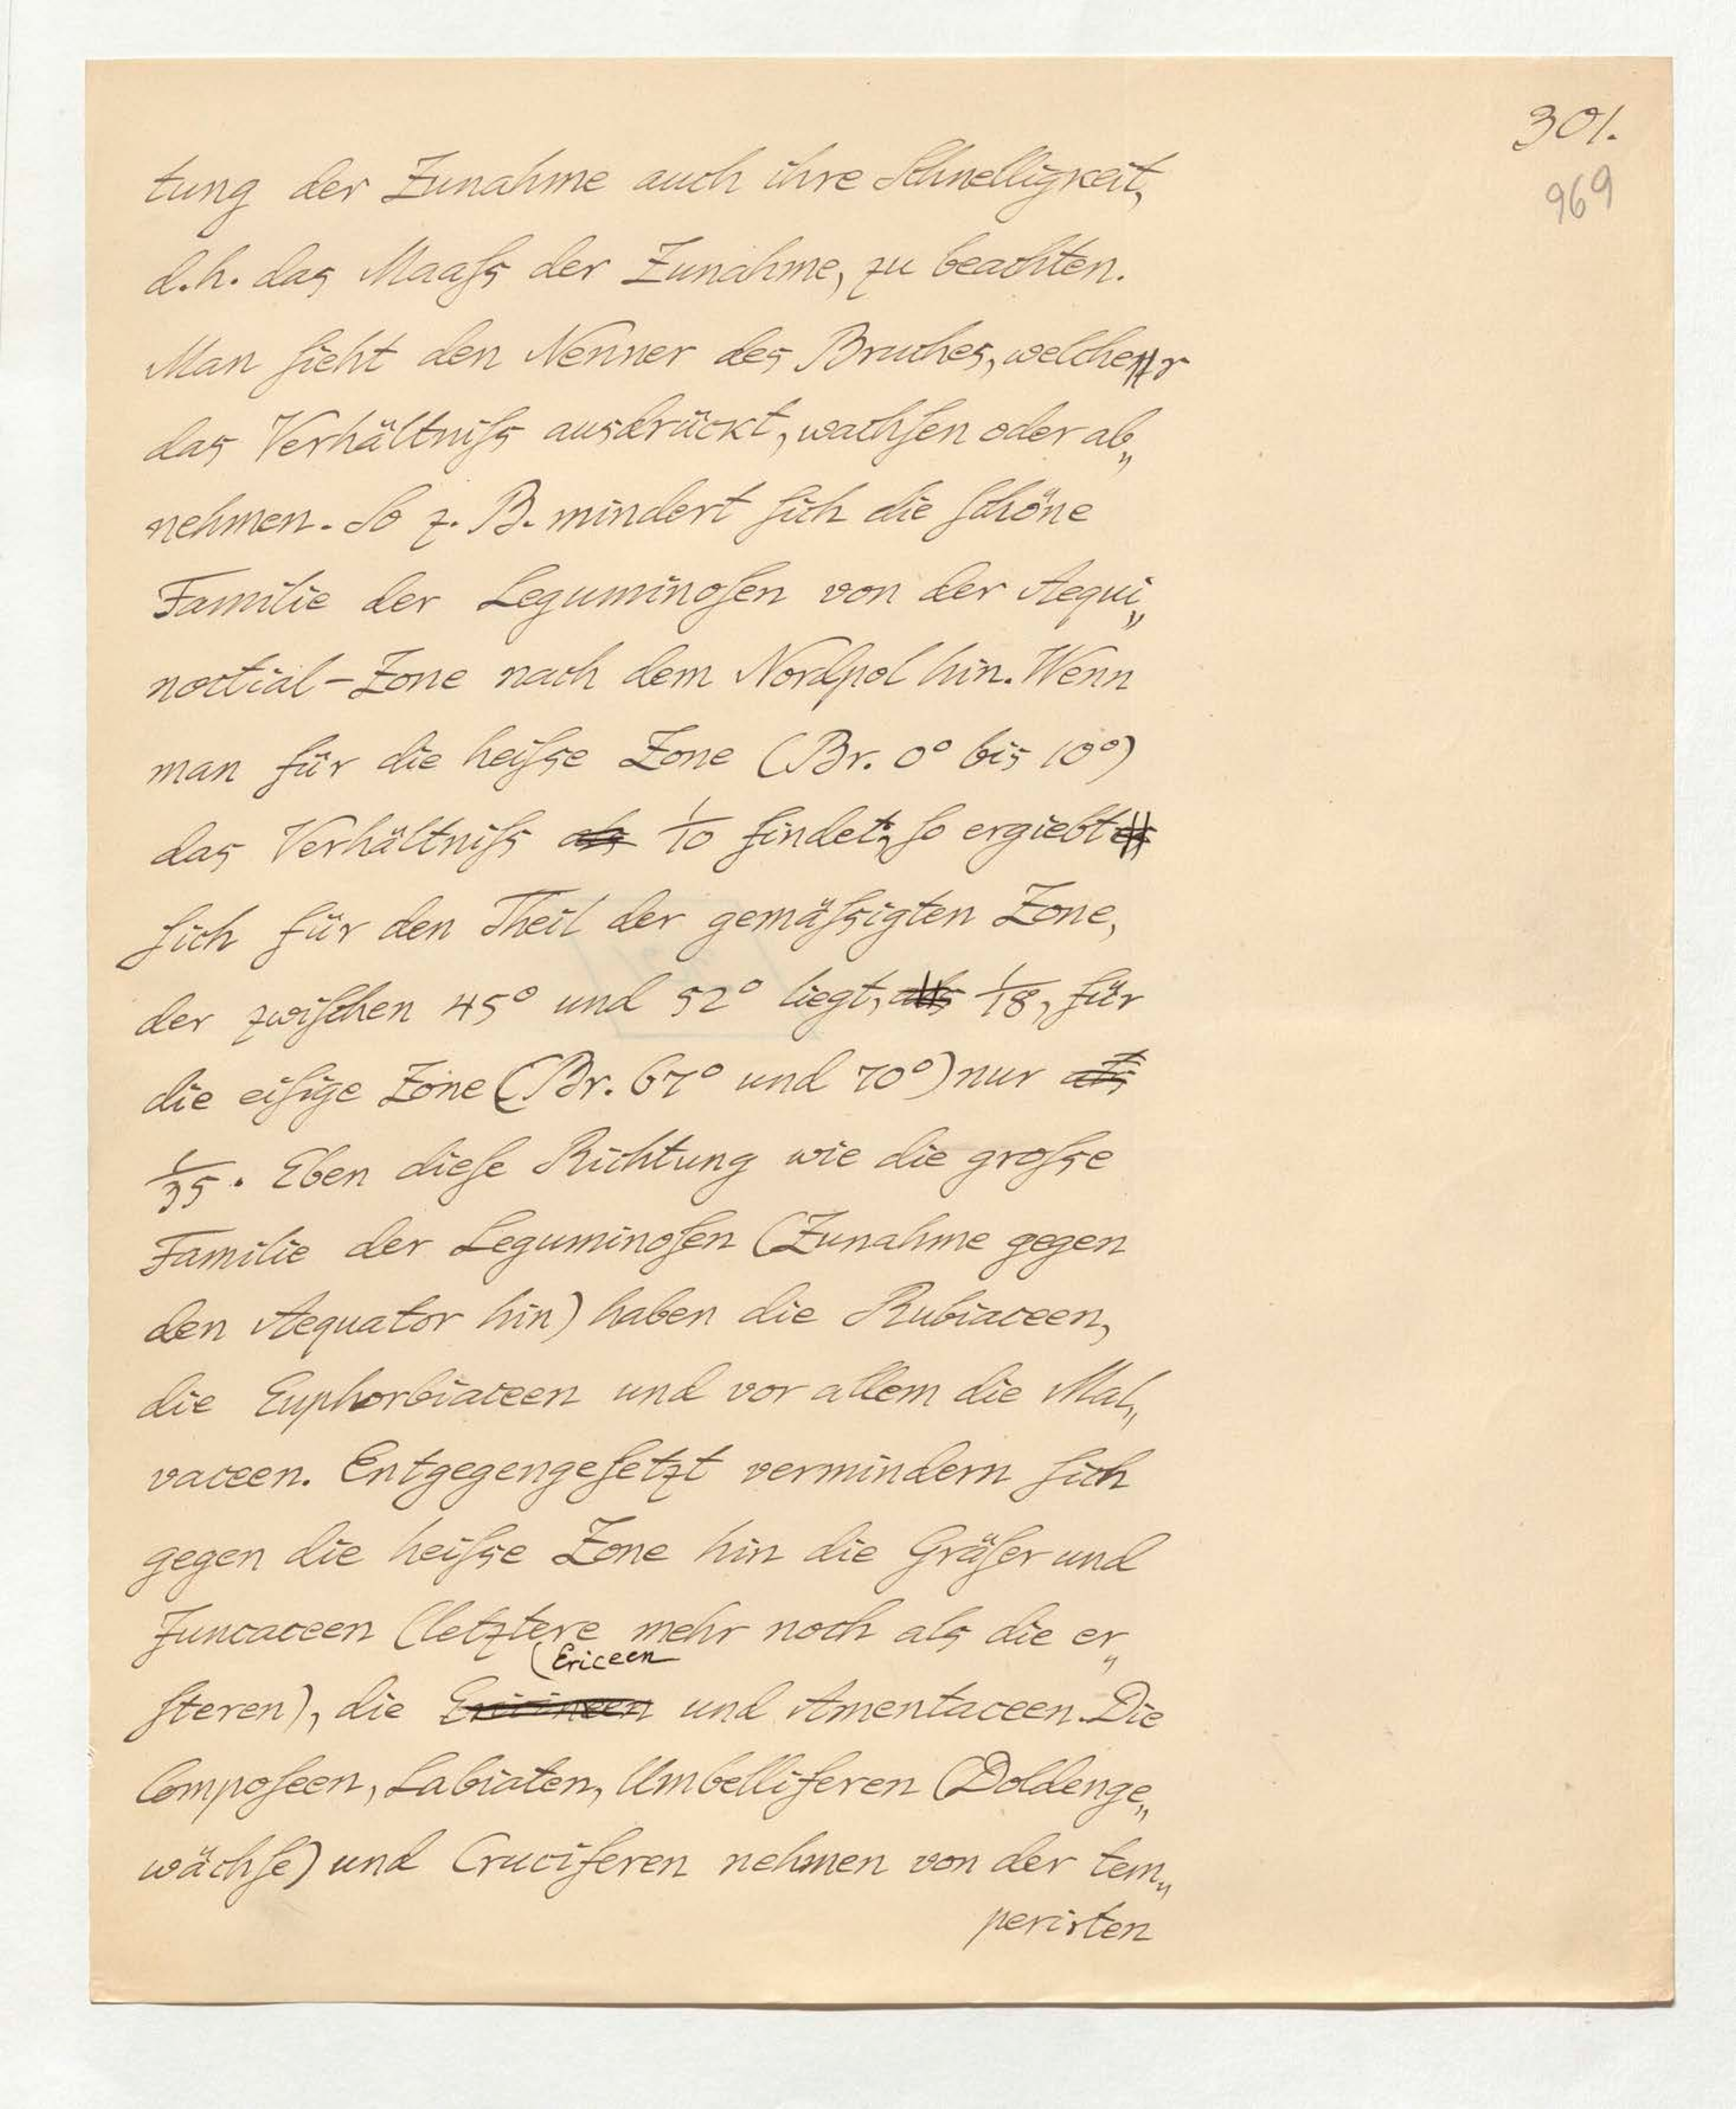 301.
969
tung der Zunahme auch ihre Schnelligkeit,
d.h. das Maaſs der Zunahme, zu beachten.
Man ſieht den Nenner des Bruches, welcher
das Verhältniſs ausdrückt, wachſen oder ab„
nehmen. So z. B. mindert ſich die ſchöne
Familie der Leguminoſen von der Aequi„
noctial-Zone nach dem Nordpol hin. Wenn
man für die heiſse Zone (Br. 0° bis 10°)
das Verhältniſs als 1/10 findet, ſo ergiebt es
ſich für den Theil der gemäſsigten Zone,
der zwiſchen 45° und 52° liegt, als 1/18, für
die eiſige Zone (Br. 67° und 70°) nur als
1/35. Eben dieſe Richtung wie die groſse
Familie der Leguminoſen (Zunahme gegen
den Aequator hin) haben die Rubiaceen,
die Euphorbiaceen und vor allem die Mal„
vaceen. Entgegengeſetzt vermindern ſich
gegen die heiſse Zone hin die Gräſer und
Juncaceen (letztere mehr noch als die er„
Ericeen
ſteren), die Ericineen und Amentaceen. Die
Compoſeen, Labiaten, Umbelliferen (Doldenge„
wächſe) und Cruciferen nehmen von der tem„
perirten